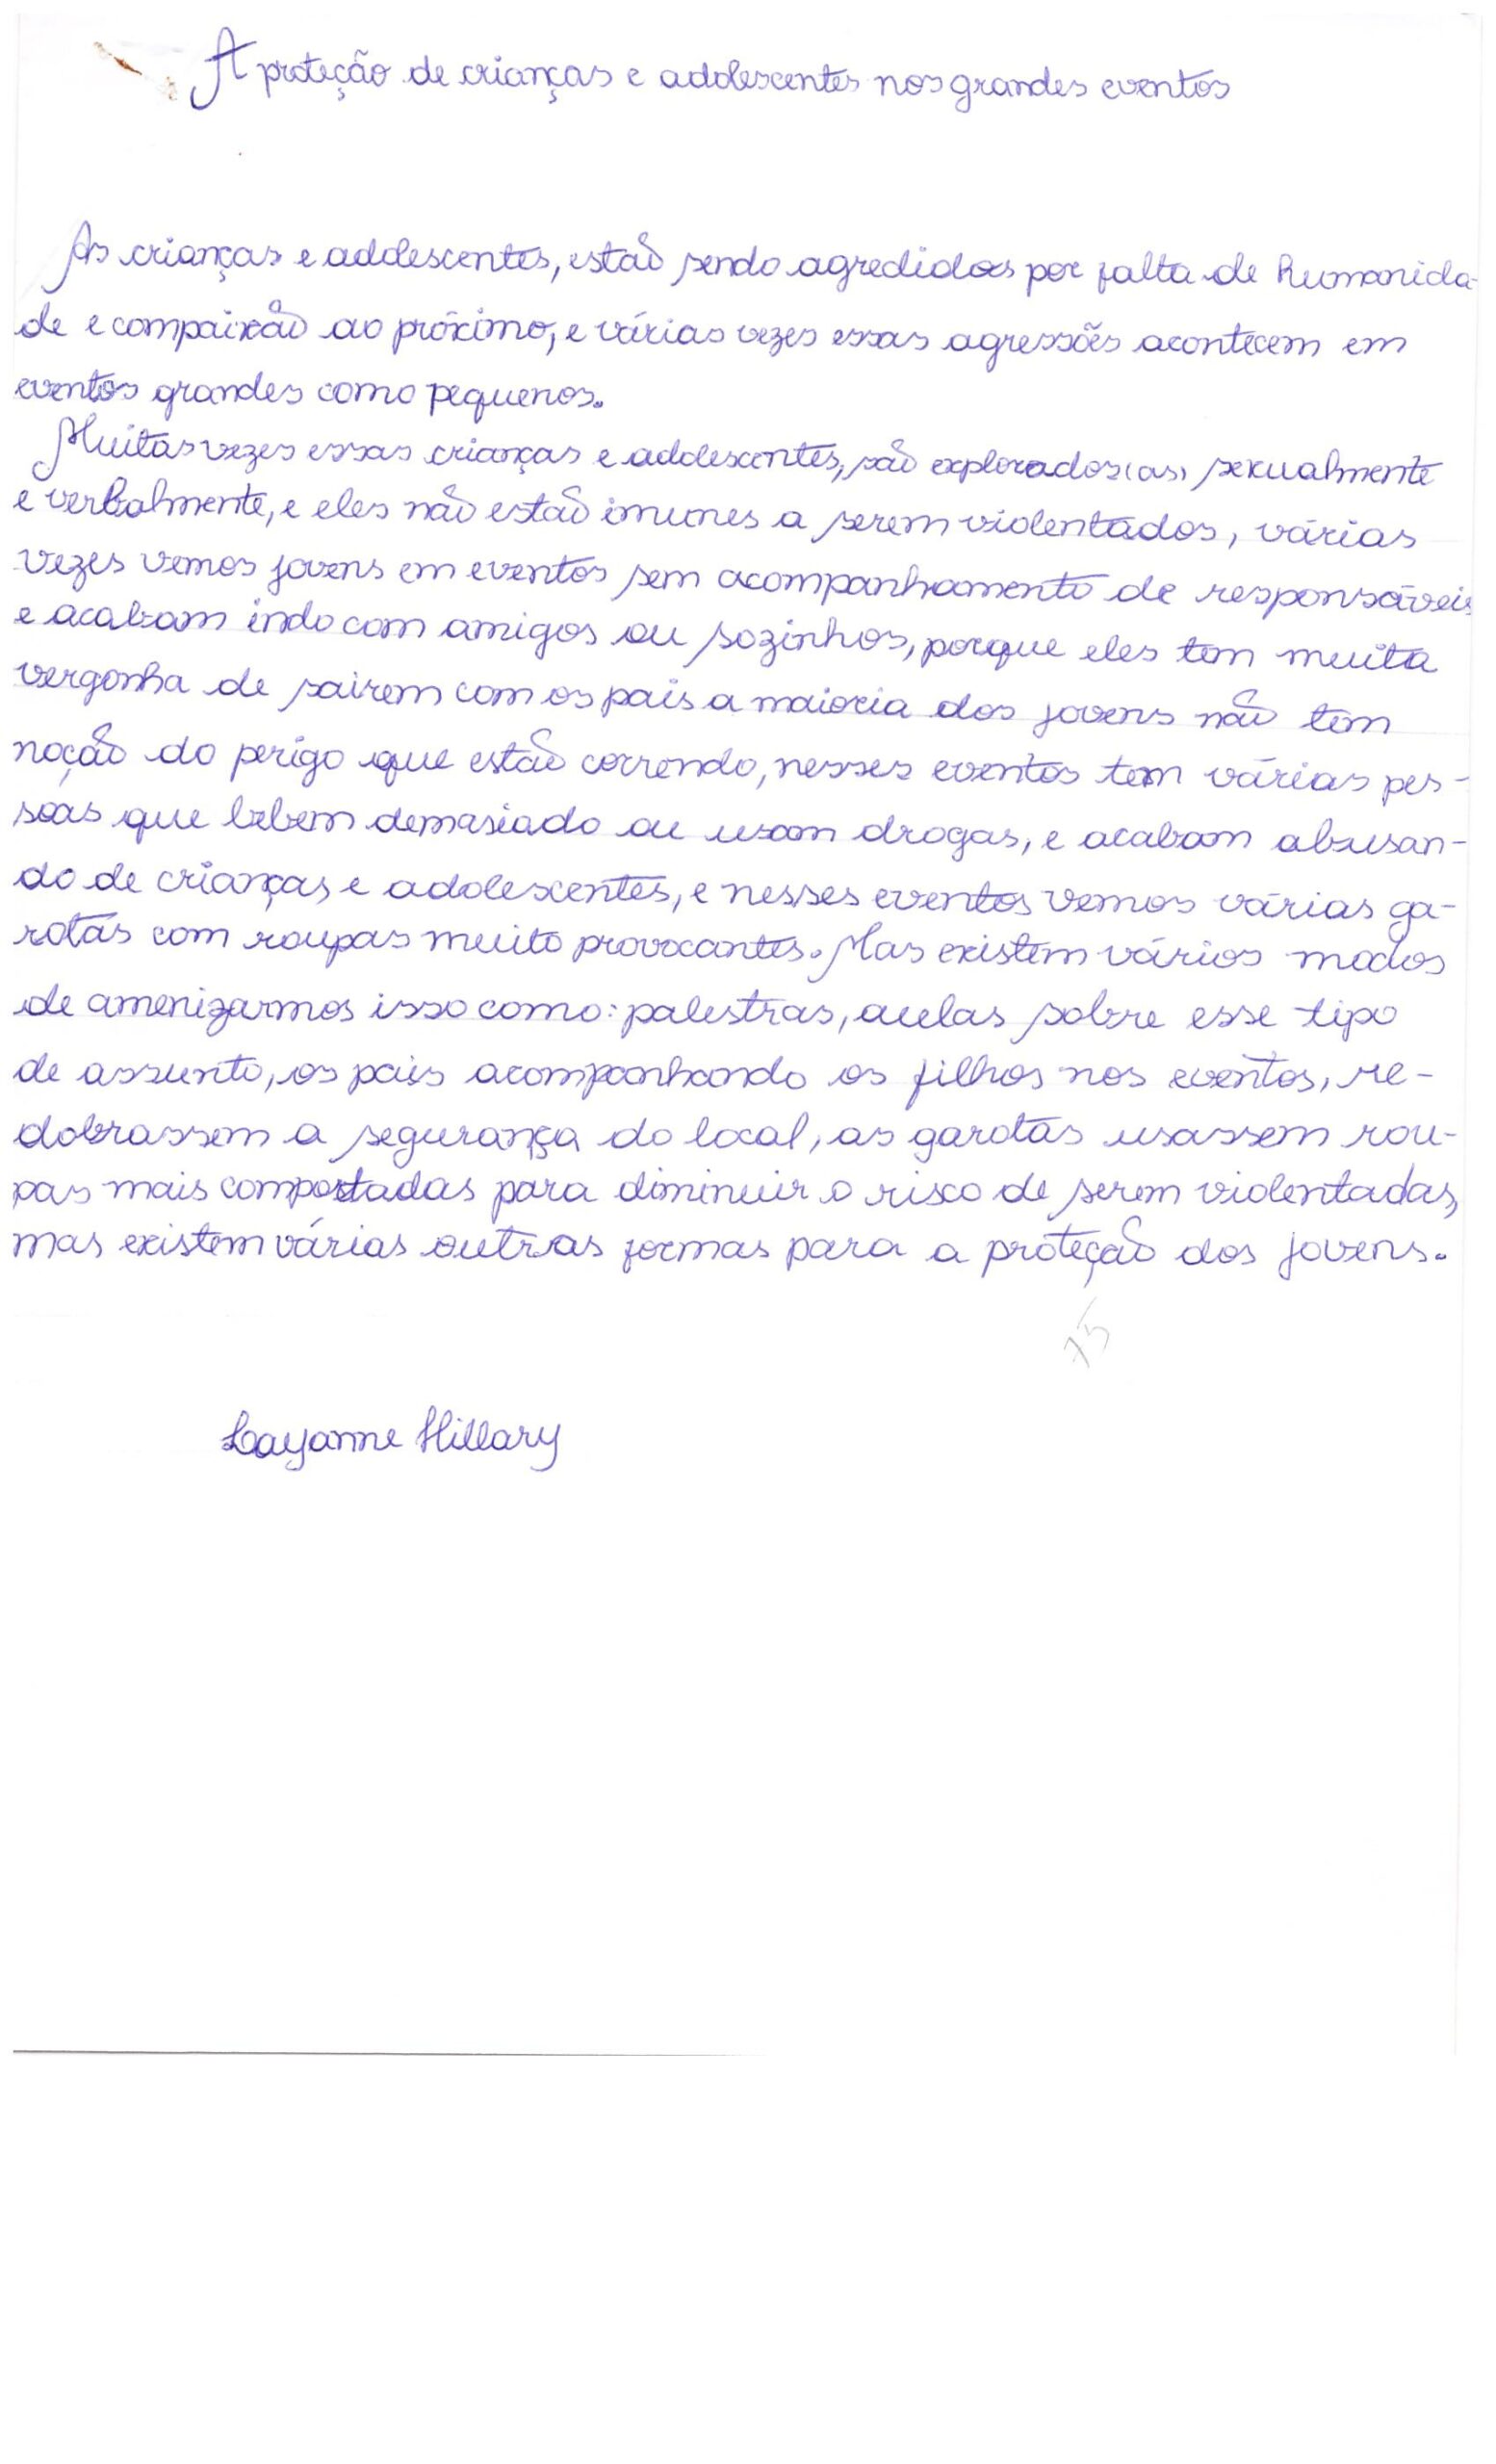 A proteção de crianças e adolescentes nos grandes eventos
As crianças e adolescentes, estão sendo agredidos por falta de humanida-
de e compaixão ao próximo, e várias vezes essas agressões acontecem em
eventos grandes como pequenos.
Muitas vezes essas crianças e adolescentes, são explorados(as) sexualmente
e verbalmente, e eles não estão imunes a serem violentados, várias
vezes vemos jovens em eventos sem acompanhamento de responsáveis
e acabam indo com amigos ou sozinhos, porque eles tem muita
vergonha de sairem com os pais a maioria dos jovens não tem
noção do perigo que estão correndo, nesses eventos tem várias pes-
soas que bebem demasiado ou usam drogas, e acabam abusan-
do de crianças e adolescentes, e nesses eventos vemos várias ga-
rotas com roupas muito provocantes. Mas existem vários modos
de amenizarmos isso como: palestras, aulas sobre esse tipo
de assunto, os pais acompanhando os filhos nos eventos, re-
dobrassem a segurança do local, as garotas usassem rou-
pas mais comportadas para diminuir o risco de serem violentadas,
mas existem várias outras formas para a proteção dos jovens.
15
Layanne Hillary